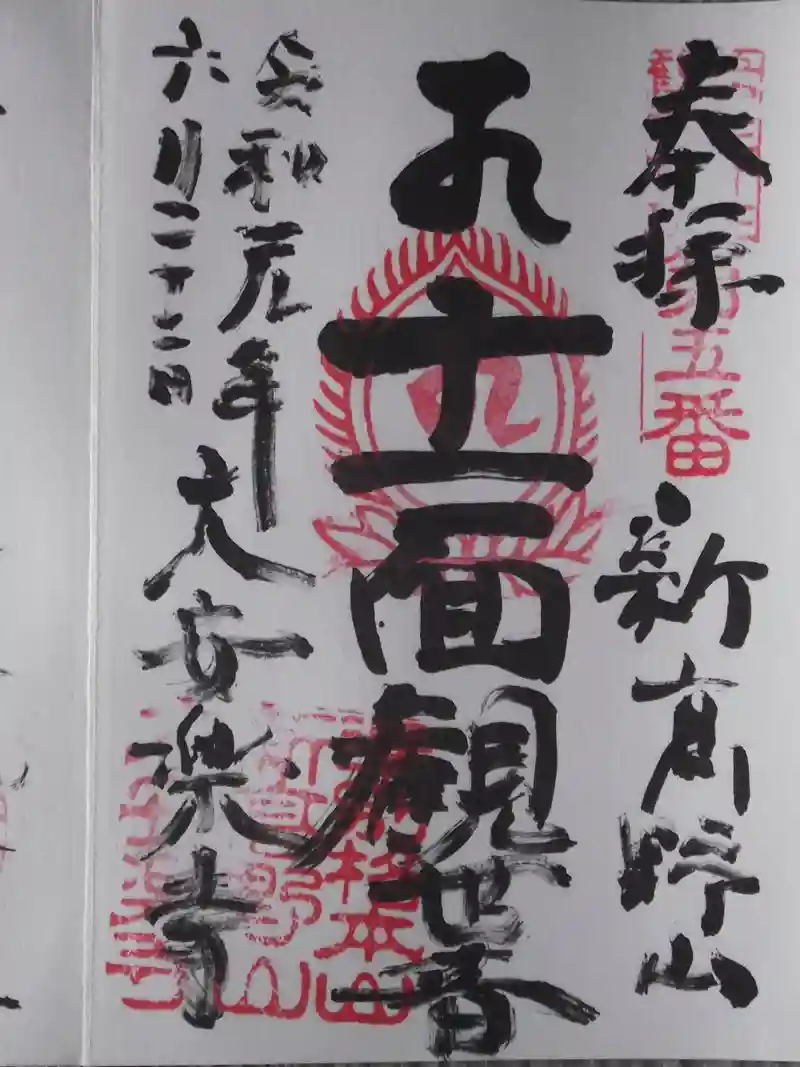 奉拝 新高野山
第五番
十一面観世音
令和元年
六月二十二日
大安楽寺
新高野山